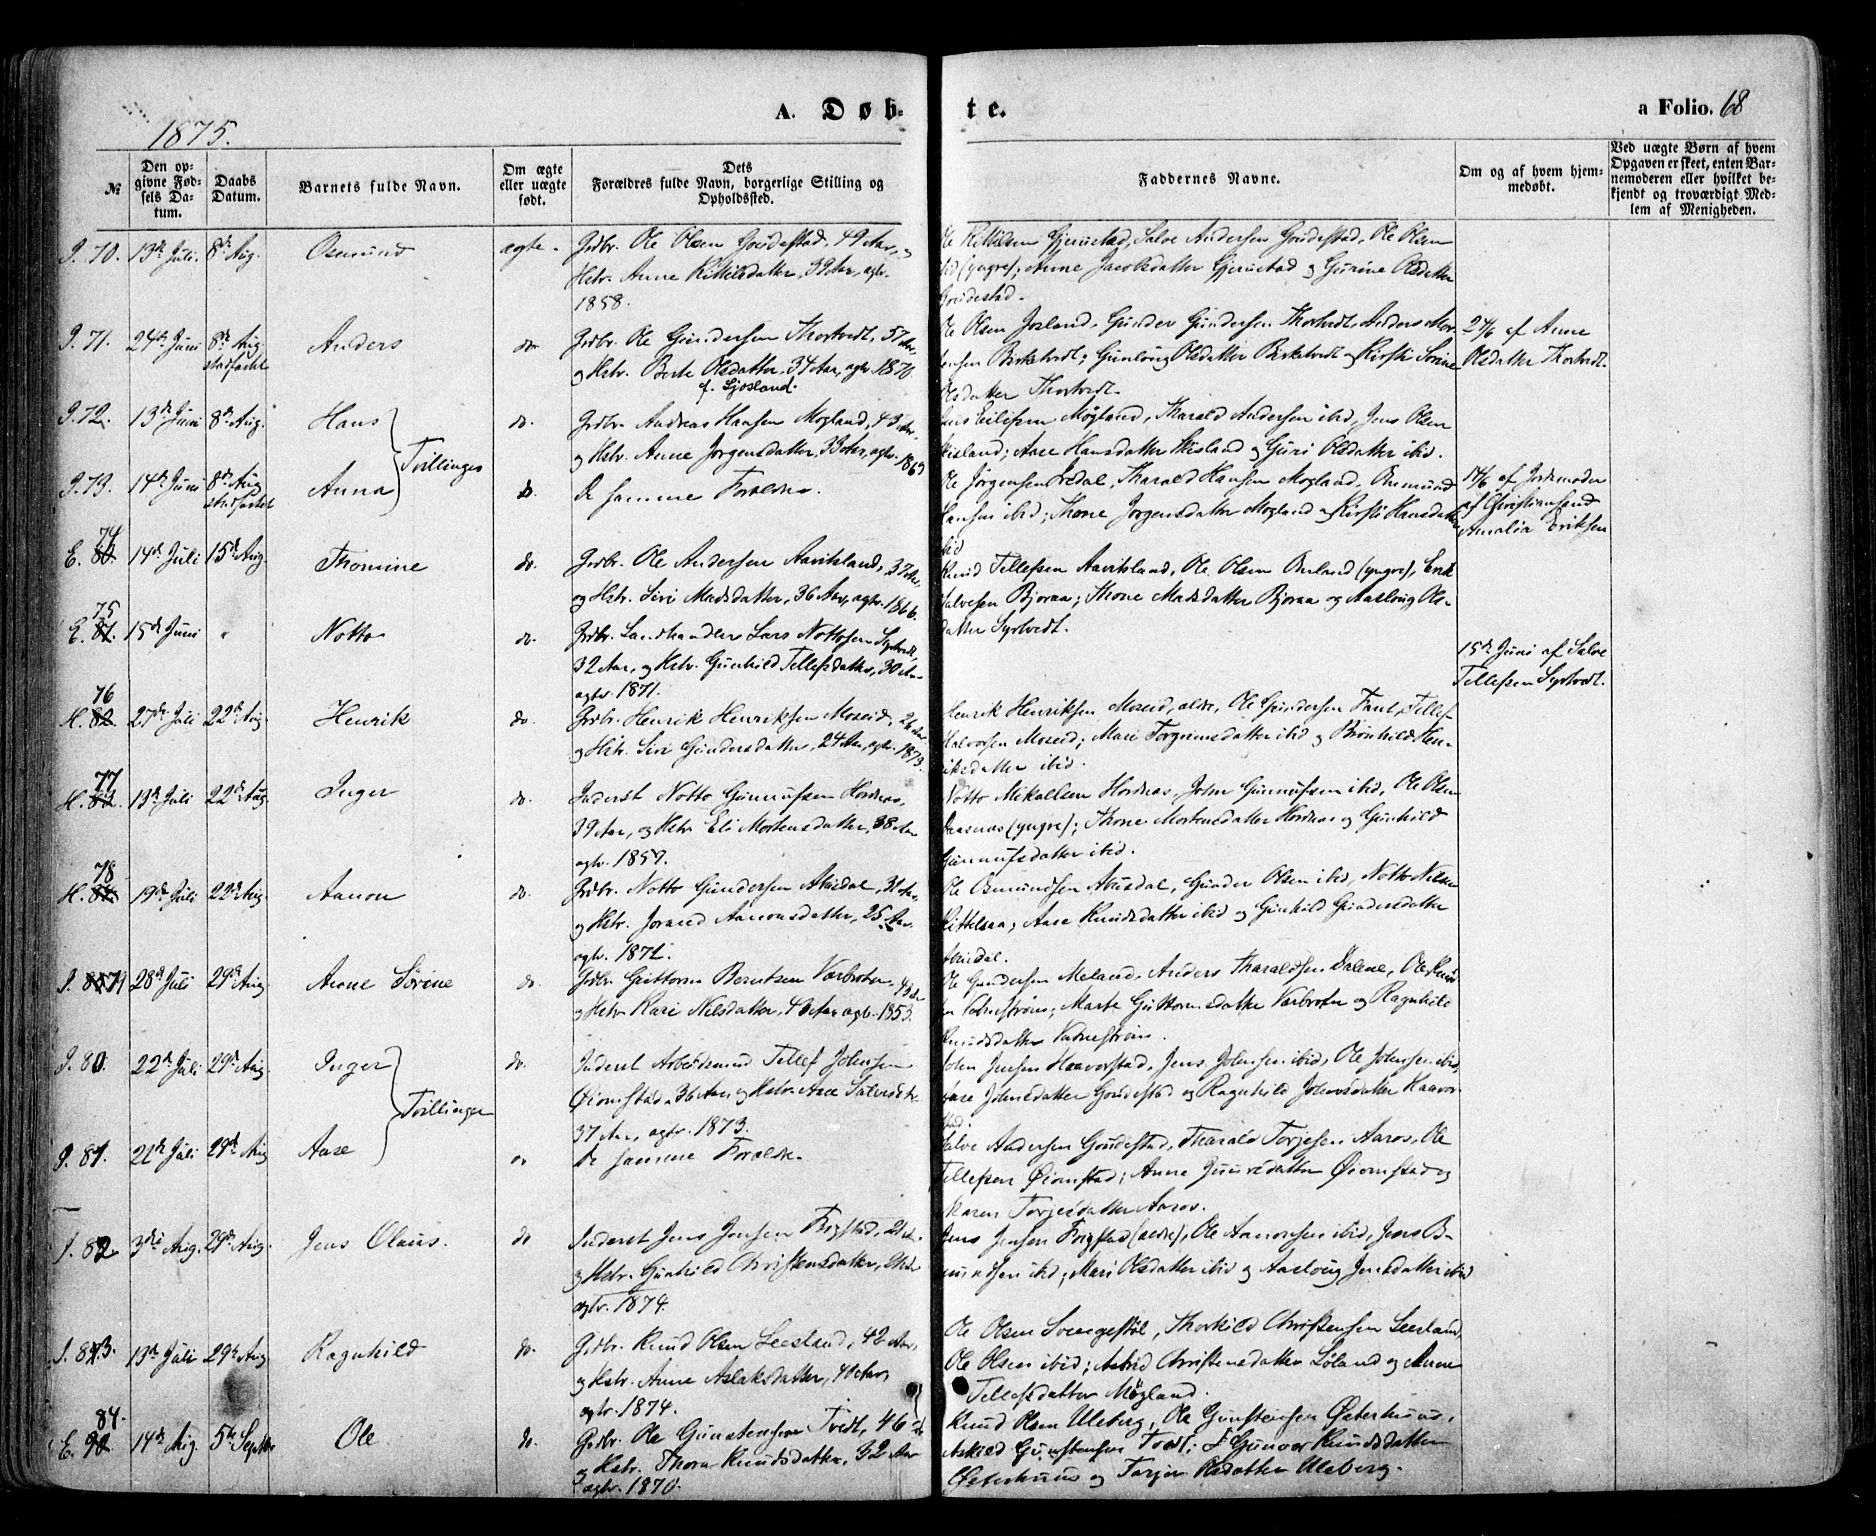 1875.
A. Døb-
te.
a Folio. 68
№
Den op-
givne Fød-
sels Da-
tum.
Daabs
Datum.
Barnets fulde Navn.
Om ægte
eller uægte
født.
Dets
Forældres fulde Navn, borgerlige Stilling og
Opholdssted.
Faddernes Navne.
Om og af hvem hjem-
medøbt.
Ved uægte Børn af hvem
Opgaven er skeet, enten Bar-
nemoderen eller hvilket be-
kjendt og troværdigt Med-
lem af Menigheden.
70. 13de Juli. 8de Aug. Osmund ægte. Grdbr. Ole Olsen Goudestad, 49 Aar,
Hstr. Anne Kittilsdatter, 39 Aar, agtv.
1858.
Ole Kittilsen Gjerustad, Salve Andersen Goudestad, Ole Olsen
ibid (yngre); Anne Jacobsdatter Gjerustad og Gurine Olsdatter
Goudestad.
71. 24de Juni 8de Aug. stadfæstet Anders do. Grdbr. Ole Gundersen Thortvedt, 57 Aar,
og Hstr. Berte Olsdatter, 34 Aar, agtv. 1870.
f. Ljosland.
Ole Olsen Josland, Gunder Gundersen Thortvedt, Anders Mor-
tensen Birketvedt; Gunloug Olsdatter Birketvedt og Kirsti Sorine
Olsdatter Thortvedt.
27/6 af Anne
Olsdatter Thortvedt.
72. 13de Juni 8de Aug. Hans do. Grdbr. Andreas Hansen Mogland, 43 Aar,
og Hstr. Anne Jorgensdatter, 33 Aar, agtv. 1869
Tvillinger
Jens Eilefsen Møgland, Tharald Andersen ibid, Jens Olsen
Hisland; Aase Hansdatter Hisland og Guri Olsdatter ibid.
73. 14de Juni 8de Aug. stadfæstet Anna do. De samme Forældre.
Ole Jörgensen Tvedal, Tharald Hansen Mogland, Osmund
Hansen ibid; Thone Jorgensdatter Mogland og Kirsti Hansdatter
ibid
14/6 af Jordemoder
af Christiansand
Amalia Eriksen
74
E. 80. 14de Juli 15de Aug. Thomine do. Grdbr. Ole Andersen Aavitsland, 37 Aar,
og Hstr. Siri Madsdatter, 36 Aar, agtv. 1866.
Knud Tellefsen Aavitsland, Ole Olsen Berland (yngre), Erik
Salvesen Bjoraa; Thone Madsdatter Bjoraa og Aasloug Ols-
datter Syrtvedt.
75
E. 81. 15de Juni " Notto do. Grdbr. Landhandler Lars Nottosen Syrtvedt,
32 Aar, og Hstr. Gunhild Tellefsdatter, 30 Aar
agtv. 1871.
15de Juni af Salve
Tellefsen Syrtvedt.
76
H. 82. 27de Juli 22de Aug Henrik do. Grdbr. Henrik Henriksen Moseid, 26 Aar
og Hstr. Siri Gundersdatter, 24 Aar, agtv. 1873.
Henrik Henriksen Moseid, ældre, Ole Gundersen Faul, Tellef
Halvorsen Moseid; Mari Torgrimsdatter ibid og Brønhild Hen-
riksdatter ibid.
77
H. 83. 13de Juli 22de Aug. Inger do. Inderst Notto Gunnufsen Hordnes,
39 Aar, og Hstr. Eli Mortensdatter, 38 Aar
agtv. 1857.
Notto Mikallsen Hordnes, John Gunnufsen ibid, Ole Olsen
(yngre); Thone Mortensdatter Hordnes og Gunhild
Gunnufsdatter ibid.
78
H. 84. 19de Juli 22de Aug. Aanon do. Grdbr. Notto Gundersen Abusdal, 31 Aar,
og Hstr. Jorand Aanonsdatter, 25 Aar.
agtv. 1872.
Ole Osmundsen Abusdal, Gunder Olsen ibid, Notto Nilsen
Kittelsaa; Aase Knudsdatter ibid og Gunhild Gundersdatter
Abusdal.
79 28de Juli 29de Aug Anne Sörine do. Grdbr. Guttorm Berntsen Varbroten, 43 Aar
og Hstr. Kari Nilsdatter, 40 Aar agtv. 1853.
Ole Gundersen Meland, Anders Tharaldsen Dalene, Ole Knud-
sen Vatnestrøm; Marte Guttormsdatter Varbroten og Ragnhild
Knudsdatter Vatnestrøm.
80. 22de Juli 29de Aug Inger do. Inderst Arbeidsmand Tellef Johnsen
Øiomstad, 36 Aar og Hstr. Anne Salvesdtr
37 Aar, agtv. 1873.
Tvillinger
John Jensen Haaverstad, Jens Johnsen ibid, Ole Johnsen ibid,
Aase Johnsdatter Goudestad og Ragnhild Johnsdatter Haaver-
stad.
81. 22de Juli 29de Aug Aase do De samme Forældre.
Salve Andersen Goudestad, Tharald Torjesen Aaros, Ole
Tellefsen Øiomstad; Anne Gunvsdatter Øiomstad og
Karen Torjesdatter Aaros.
82 3die Aug. 29de Aug. Jens Olaus. do Inderst Jens Jensen Frigstad, 21 Aar.
og Hstr. Gunhild Christensdatter, 21 Aar
agtv. 1874.
Jens Jensen Frigstad (ældre), Ole Aanonsen ibid, Jens B-
mundsen ibid; Mari Olsdatter ibid og Aasloug Jensdatter ibid
83. 13de Juli 29de Aug Ragnhild do. Grdbr. Knud Olsen Leesland, 42 Aar,
og Hstr. Anne Aslaksdatter, 40 Aar,
agtv. 1874.
Ole Olsen Svengestøl, Thorkild Christensen Leesland,
Ole Olsen ibid; Astrid Christensdatter Löland og Anne
Tellefsdatter Møgland.
84.
E. 90. 14de Aug. 5te Septbr Ole do. Grdbr. Ole Gunstensen Tvedt, 46 Aar
og Hstr. Thora Knudsdatter, 32 Aar
agtv. 1870.
Knud Olsen Uleberg, Ole Gunsteinsen Østerhuus,
Askild Gunstensen Tvedt; Gunvor Knudsdatter
Østerhuus og Torjer Olsdatter Uleberg.